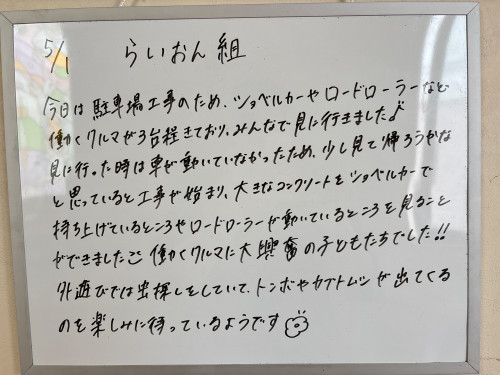 5/1 らいおん組
今日は駐車場工事のため、ショベルカーやロードローラーなど
働くクルマが3台程きており、みんなで見に行きました♪
見に行った時は車が動いていなかったため、少し見て帰ろうかな
と思っていると工事が始まり、大きなコンクリートをショベルカーで
持ち上げているところやロードローラーが動いているところを見ること
ができました 働くクルマに大興奮の子どもたちでした!!
外遊びでは虫探しをしていて、トンボやカブトムシが出てくる
のを楽しみに待っているようです